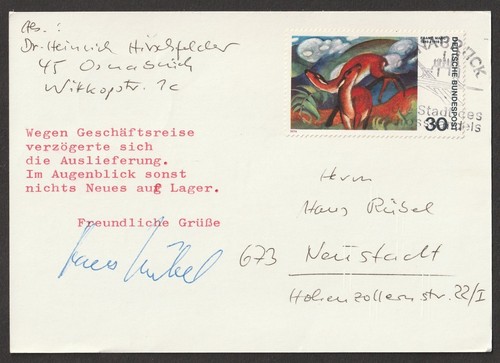 Abs.:
Dr. Heinrich Hirschfelder
45 Osnabrück
Wittkopstr. 1c
DEUTSCHE BUNDESPOST
30
Wegen Geschäftsreise
verzögerte sich
die Auslieferung.
Im Augenblick sonst
nichts Neues auf Lager.
Freundliche Grüße
Herrn
Hans Rübel
673 Neustadt
Hohenzollernstr. 22/I